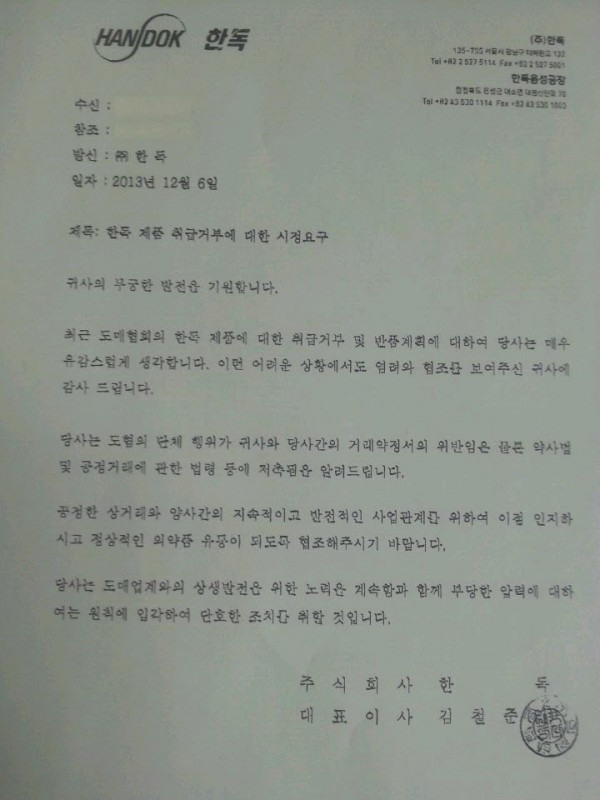 HANDOK 한독
(주)한독
135-755 서울시 강남구 테헤란로 132
Tel +82 2 527 5114 Fax +82 2 527 5001
한독음성공장
충청북도 음성군 대소면 대풍산단로 78
Tel +82 43 530 1114 Fax +82 43 530 1003
수신 :
참조 :
발신 : ㈜ 한 독
일자 : 2013년 12월 6일
제목: 한독 제품 취급거부에 대한 시정요구
귀사의 무궁한 발전을 기원합니다.
최근 도매협회의 한독 제품에 대한 취급거부 및 반품계획에 대하여 당사는 매우
유감스럽게 생각합니다. 이런 어려운 상황에서도 염려와 협조를 보여주신 귀사에
감사 드립니다.
당사는 도협의 단체 행위가 귀사와 당사간의 거래약정서의 위반임은 물론 약사법
및 공정거래에 관한 법령 등에 저촉됨을 알려드립니다.
공정한 상거래와 양사간의 지속적이고 발전적인 사업관계를 위하여 이점 인지하
시고 정상적인 의약품 유통이 되도록 협조해주시기 바랍니다.
당사는 도매업계와의 상생발전을 위한 노력을 계속함과 함께 부당한 압력에 대하
여는 원칙에 입각하여 단호한 조치를 취할 것입니다.
주 식 회 사 한 독
대 표 이 사 김 철 준